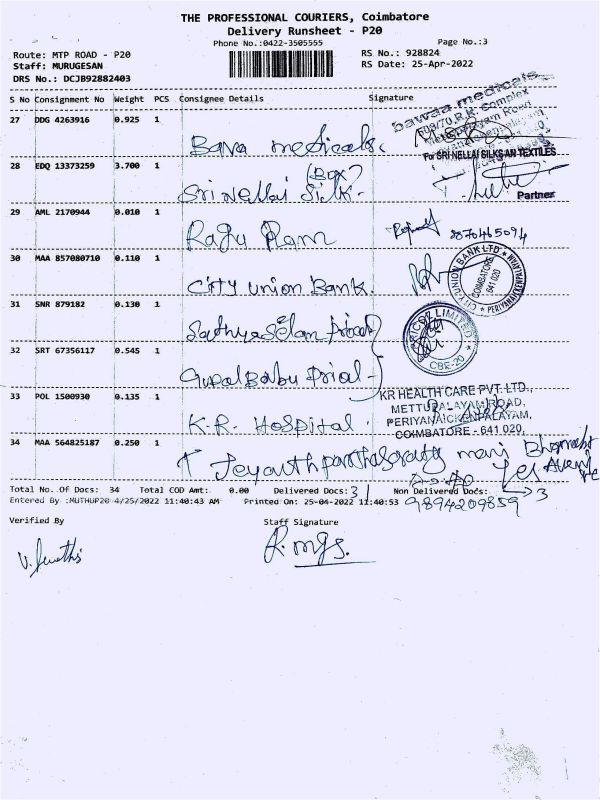 THE PROFESSIONAL COURIERS, Coimbatore
Delivery Runsheet - P20
Phone No.:0422-3505555
Page No.:3
Route: MTP ROAD - P20
RS No.: 928824
Staff: MURUGESAN
RS Date: 25-Apr-2022
DRS No.: DCJB92882403
S No Consignment No Weight PCS Consignee Details Signature
27 DDG 4263916 0.925 1
Bava medicals.
bawaa medicals
608/70,R.K. complex
28 EDQ 13373259 3.700 1
(Box)
Sri Nellai Silk.
For SRI NELLAI SILKS AN TEXTILES
Partner
29 AML 2170944 0.010 1
Raju Ram
8870465094
30 MAA 857080710 0.110 1
City union Bank.
CITY UNION BANK LTD
COIMBATORE
641 020
PERIYANAICKENPALAYAM
31 SNR 879182 0.130 1
LIMITED
CBE-20
32 SRT 67356117 0.545 1
Gupal Babu
33 POL 1500930 0.135 1
K.R. Hospital.
KR HEALTH CARE PVT. LTD.,
METTUPALAYAM ROAD,
PERIYANAICKENPALAYAM,
COIMBATORE - 641 020.
34 MAA 564825187 0.250 1
mani
Total No. Of Docs: 34 Total COD Amt: 0.00 Delivered Docs: 31 Non Delivered Docs: 3
Entered By :MUTHUP20 4/25/2022 11:40:43 AM Printed On: 25-04-2022 11:40:53
9894209859
Verified By
Staff Signature
R. mgs.